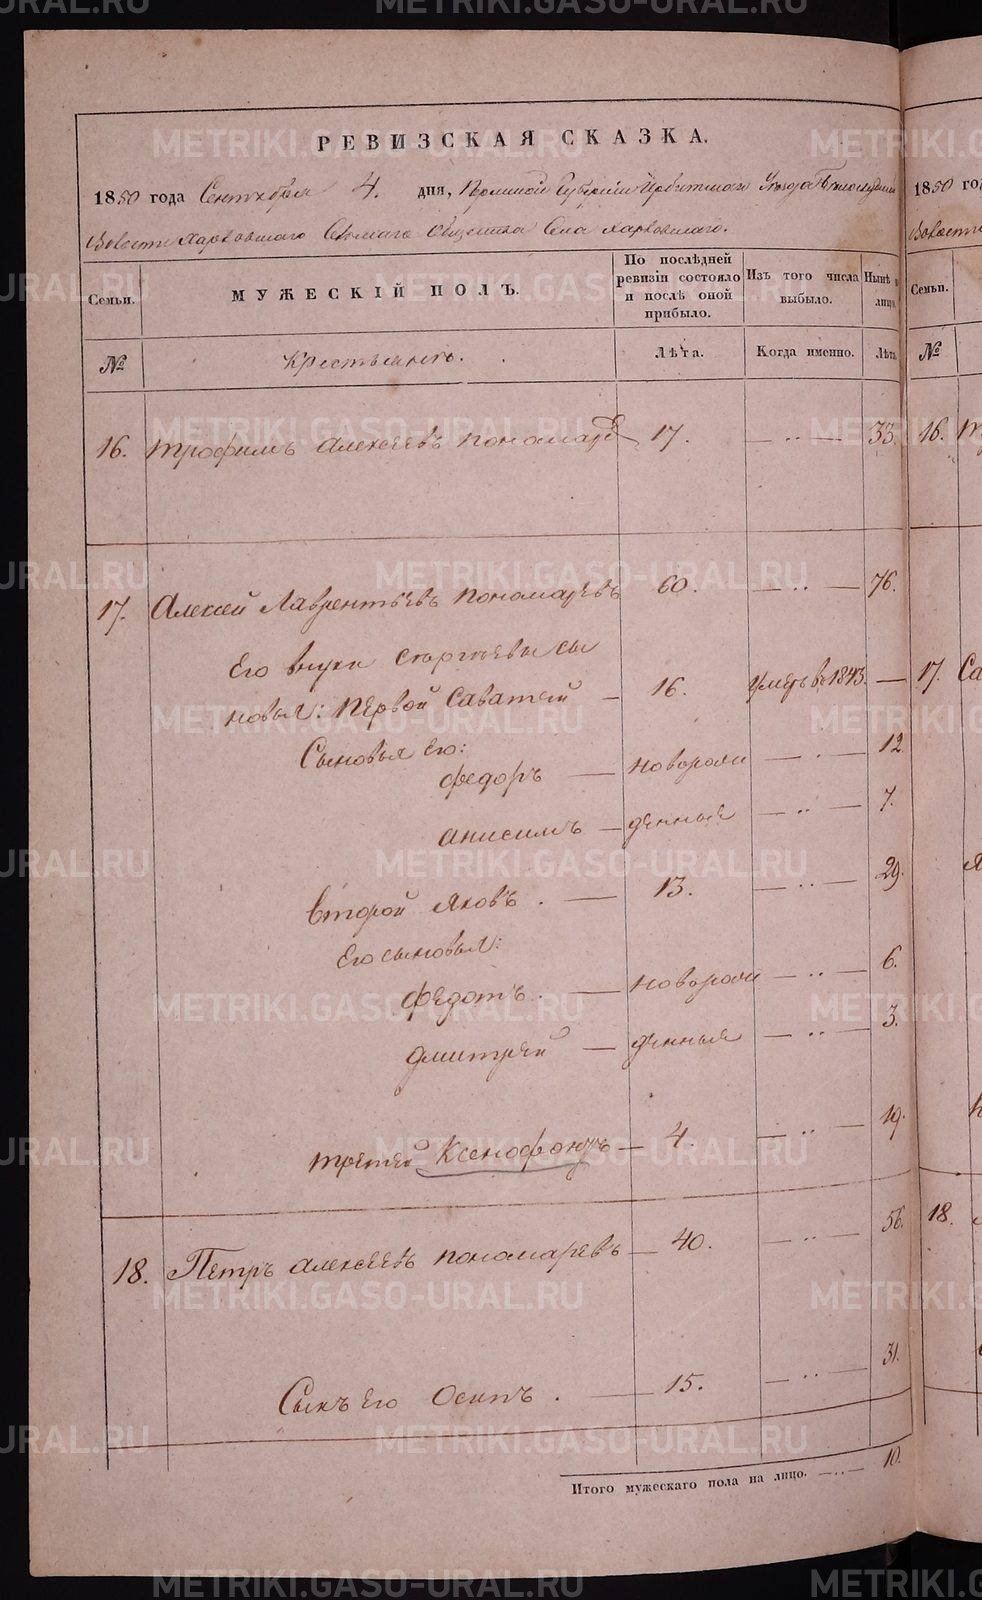 РЕВИЗСКАЯ СКАЗКА.
1850 года Сентября 4. дня, Пермской Губернии Ирбитскаго Уезда
Волости Харловскаго Сельскаго Общества Села Харловскаго.
Семьи. МУЖЕСКІЙ ПОЛЪ. По послѣдней ревизіи состояло и послѣ оной прибыло. Изъ того числа выбыло. Нынѣ в лицо.
№ Крестьянъ. Лѣта. Когда именно. Лѣта.
16. Трофимъ Алексеевъ Пономарев 17. — ·· — 33.
17. Алексей Лаврентьевъ Пономаревъ 60. — ·· — 76.
Его внуки Сергеевы сы
новья: Первой Саватей — 16. Умеръ в 1843. —
Сыновья его:
Федоръ — новорож — · — 12
Анисимъ — денныя — ·· — 7.
Второй Яковъ. — 13. — ·· — 29.
Его сыновья:
Федотъ. — новорож — ·· — 6.
Дмитрей — денныя — ·· — 3.
Третей Ксенофонтъ — 4. — ·· — 19.
18. Петръ Алексеевъ Пономаревъ — 40. — ·· — 56.
Сынъ его Осипъ. — 15. — ·· — 31.
Итого мужескаго пола на лицо. — ·· — 10.
1850 го
Волости
Семьи.
№
16. Т
17. Са
Я
К
18.
METRIKI.GASO-URAL.RU